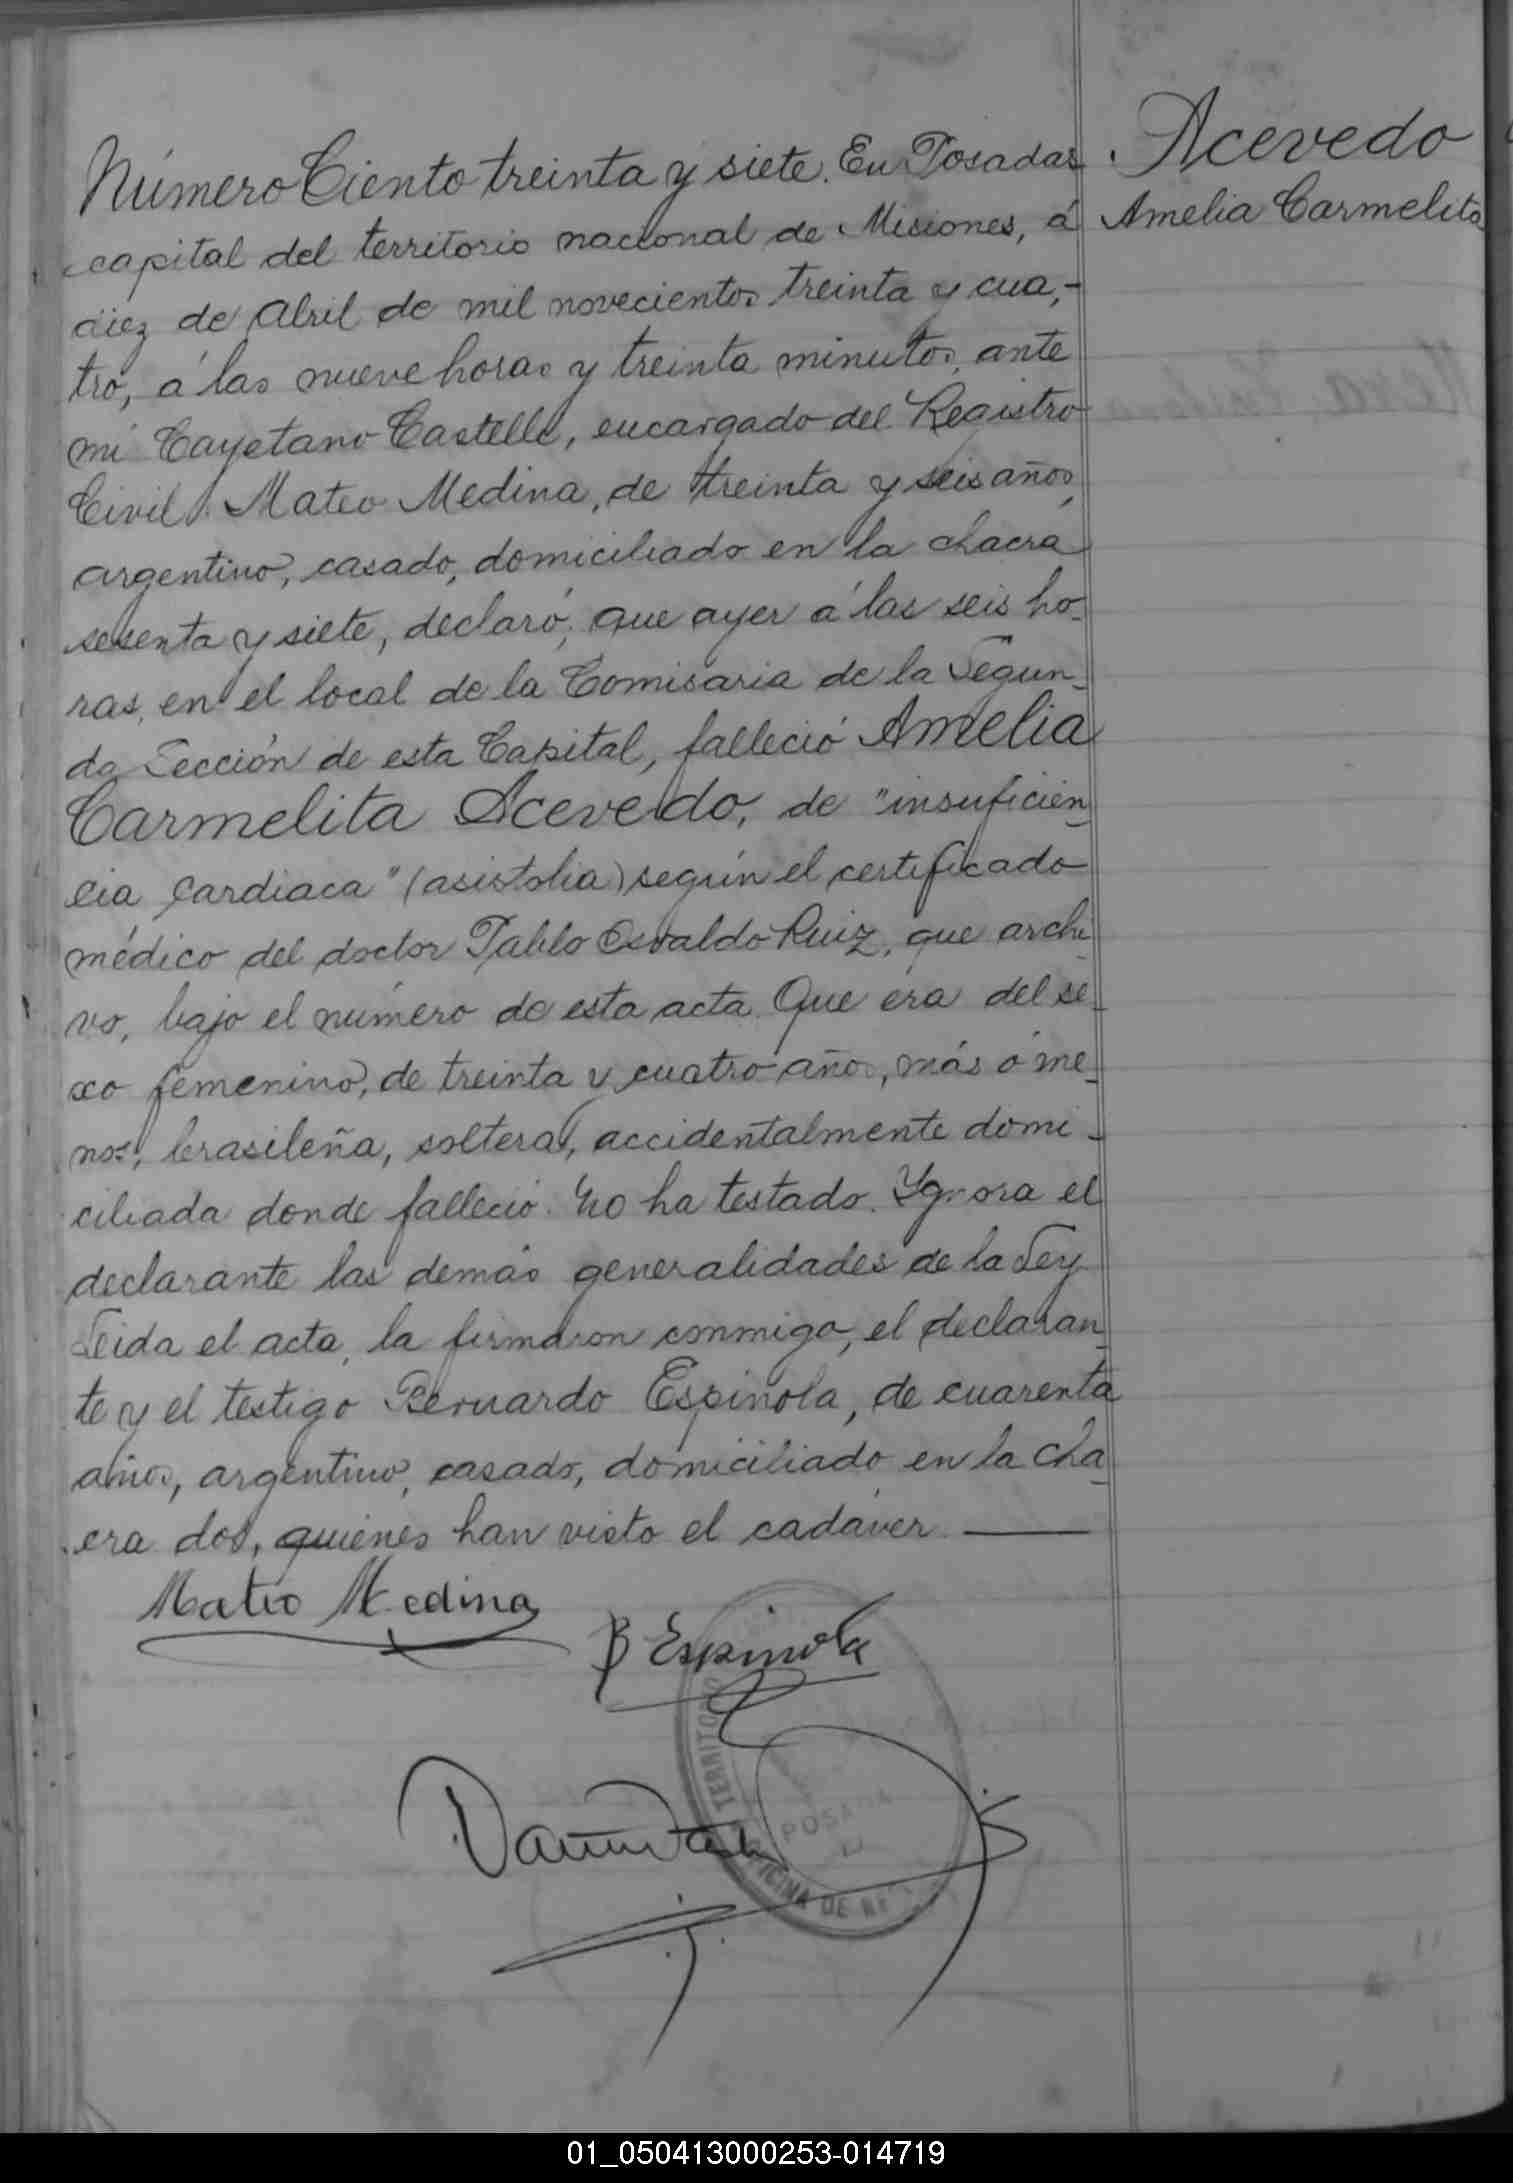 Acevedo
Amelia Carmelita
Número Ciento treinta y siete. En Posadas
capital del territorio nacional de Misiones, á
diez de Abril de mil novecientos treinta y cua,-
tro, á las nueve horas y treinta minutos, ante
mi Cayetano Castelli, encargado del Registro
Civil. Mateo Medina, de treinta y seis años,
argentino, casado, domiciliado en la chacra
sesenta y siete, declaró; que ayer á las seis ho-
ras, en el local de la Comisaria de la Segun-
da Sección de esta Capital, falleció Amelia
Carmelita Acevedo, de "insuficien-
cia Cardiaca" (asistolia) según el certificado
médico del doctor Pablo Osvaldo Ruiz, que archi-
vo, bajo el número de esta acta. Que era del se-
xo femenino, de treinta y cuatro años, más ó me-
nos, brasileña, soltera, accidentalmente domi-
ciliada donde falleció. No ha testado. Ygnora el
declarante las demás generalidades de la Ley.
Leida el acta, la firmaron conmigo, el declaran-
te y el testigo Bernardo Espinola, de cuarenta
años, argentino, casado, domiciliado en la cha-
cra dos, quienes han visto el cadáver. ——
Mateo Medina
B Espinola
TERRITORIO
POSADA
OFICINA DE
01_050413000253-014719